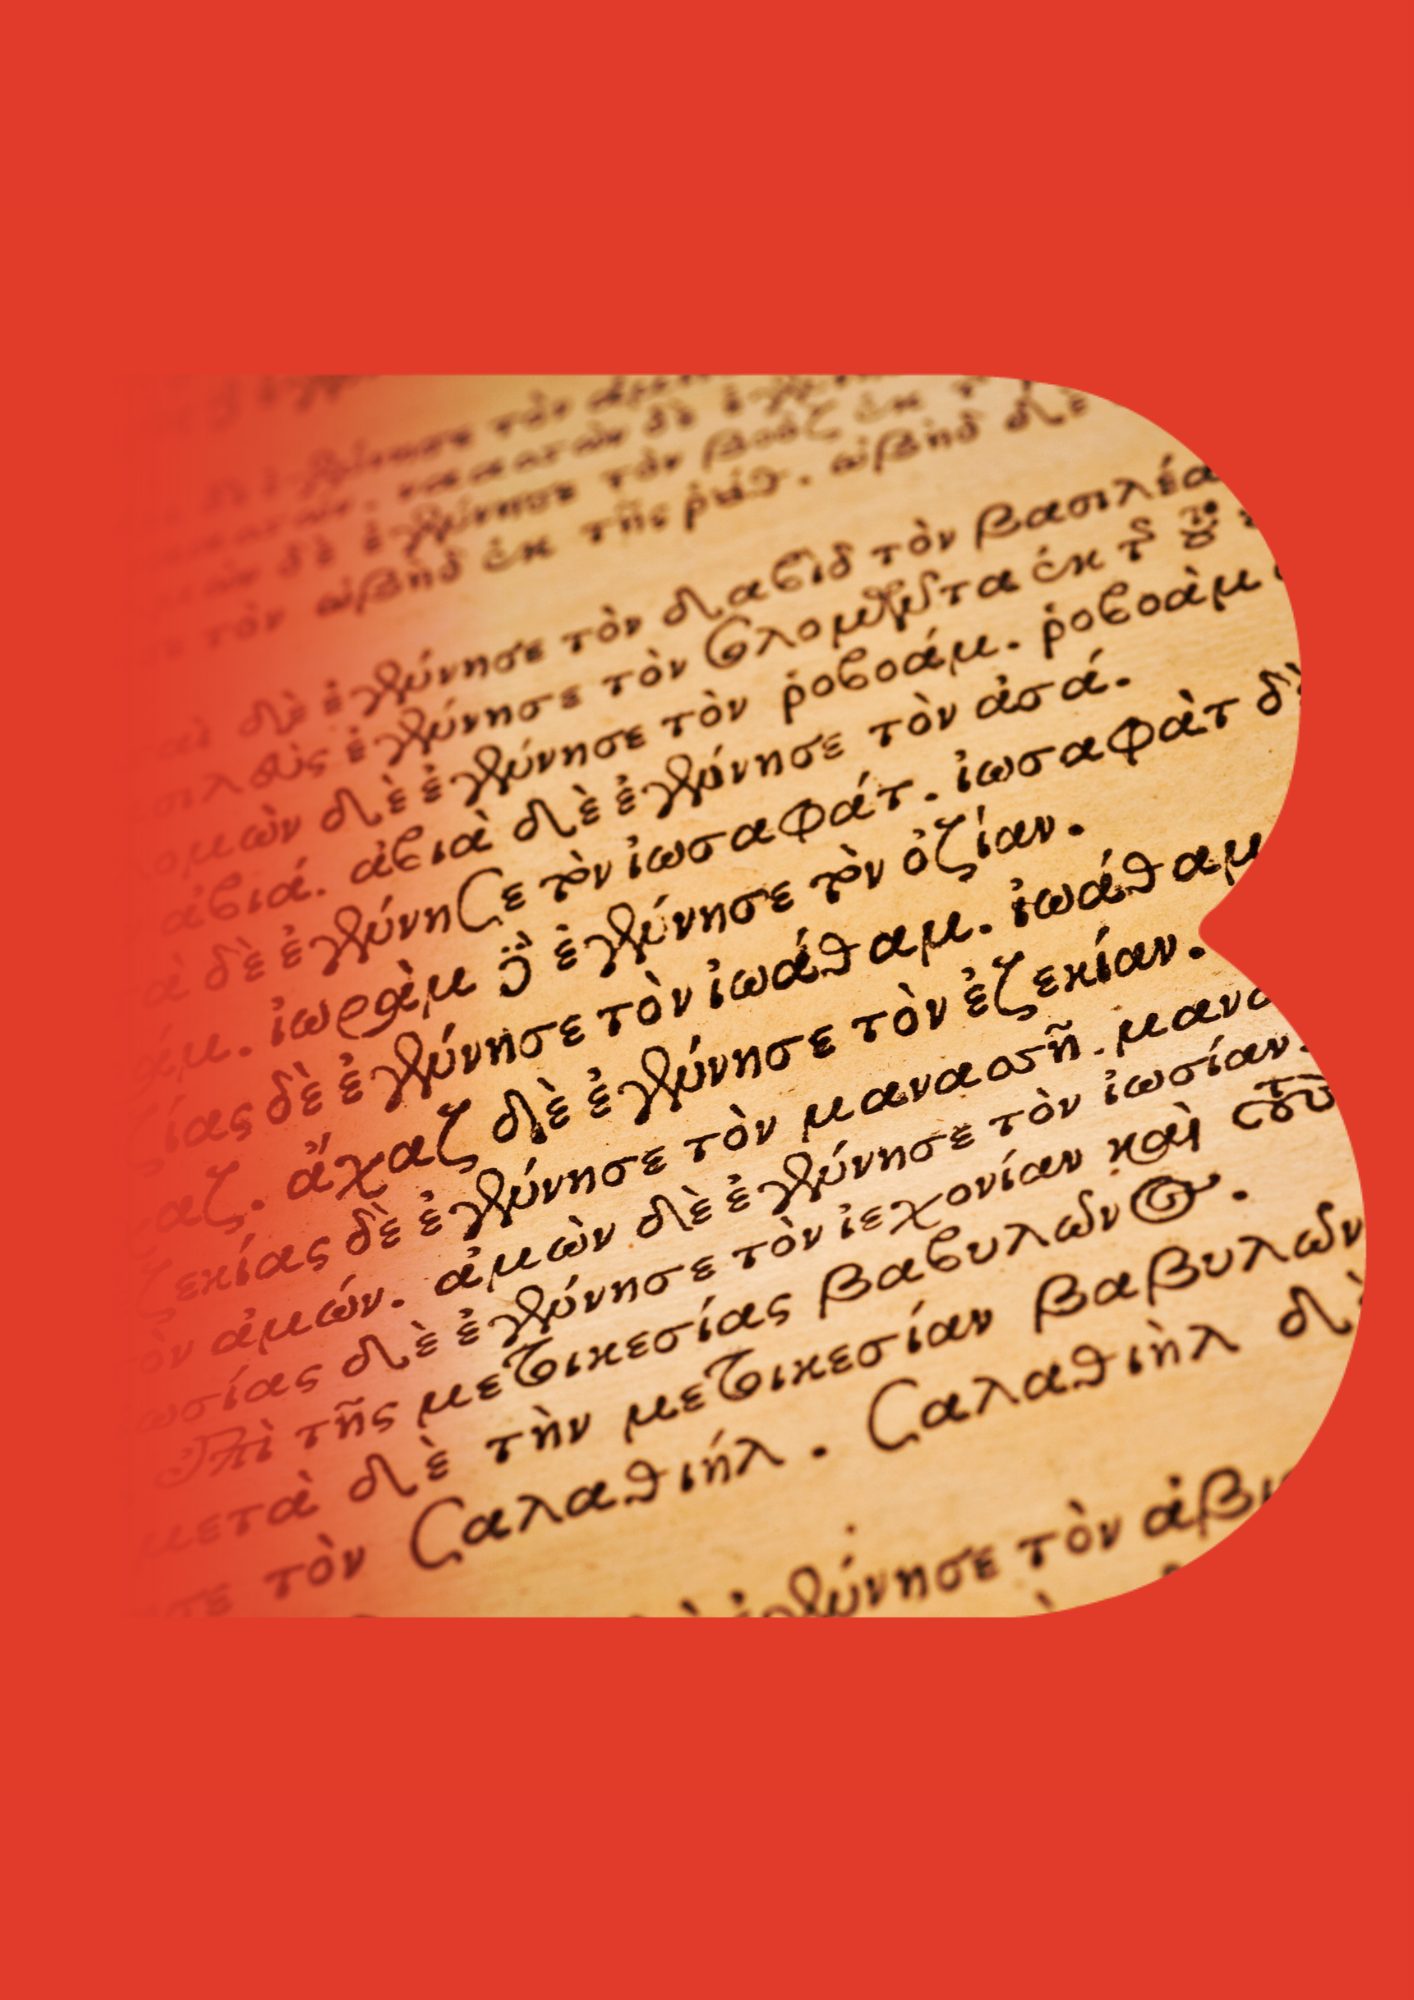 δὲ ἐγέννησε τὸν βοὸζ ἐκ
σε τὸν ὠβὴδ ἐκ τῆς ῥούθ. ὠβὴδ δὲ
σαὶ δὲ ἐγέννησε τὸν δαβὶδ τὸν βασιλέα
σιλεὺς ἐγέννησε τὸν σολομῶντα ἐκ τῆς τοῦ
λομὼν δὲ ἐγέννησε τὸν ῥοβοάμ. ῥοβοὰμ
ἀβιά. ἀβιὰ δὲ ἐγέννησε τὸν ἀσά.
ὰ δὲ ἐγέννησε τὸν ἰωσαφάτ. ἰωσαφὰτ δὲ
άμ. ἰωρὰμ δὲ ἐγέννησε τὸν ὀζίαν.
ζίας δὲ ἐγέννησε τὸν ἰωάθαμ. ἰωάθαμ
χαζ. ἄχαζ δὲ ἐγέννησε τὸν ἐζεκίαν.
ζεκίας δὲ ἐγέννησε τὸν μανασσῆ. μανα
ὸν ἀμών. ἀμὼν δὲ ἐγέννησε τὸν ἰωσίαν.
ωσίας δὲ ἐγέννησε τὸν ἰεχονίαν καὶ τοὺ
ἐπὶ τῆς μετοικεσίας βαβυλῶνος.
μετὰ δὲ τὴν μετοικεσίαν βαβυλῶν
σε τὸν σαλαθιήλ. σαλαθιὴλ δὲ
ἐγέννησε τὸν ἀβι